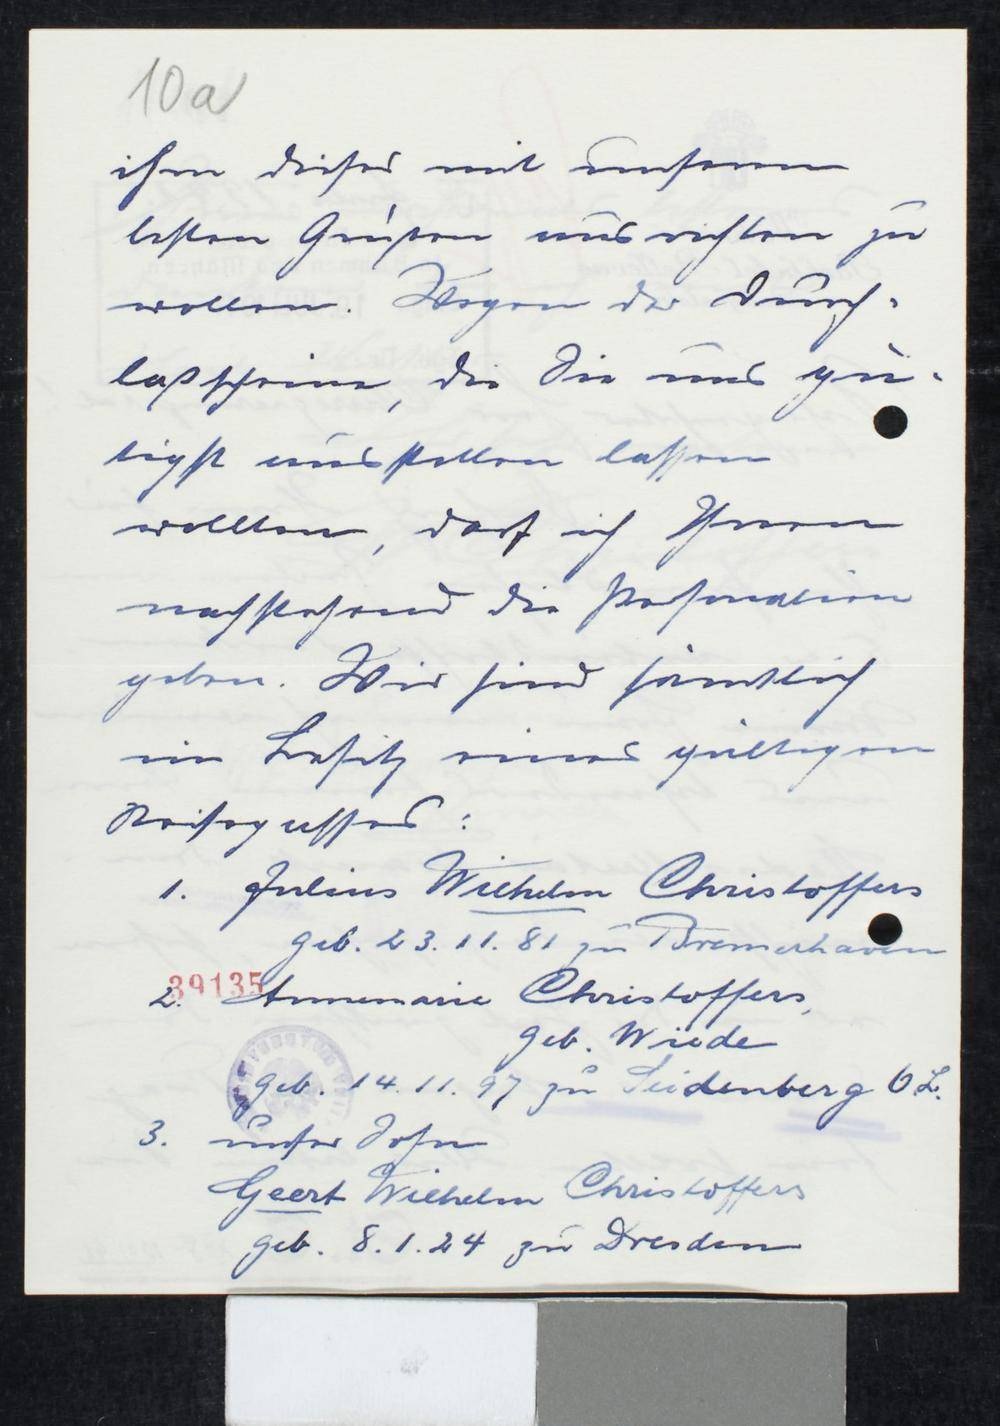 10a
ihm dieses mit unseren
besten Grüßen ausrichten zu
wollen. Wegen der Durch-
laßscheine, die Sie uns gü-
tigst ausstellen lassen
wollten, darf ich Ihnen
nachstehend die Personalien
geben. Wir sind sämtlich
im Besitz eines gültigen
Reisepasses:
1. Julius Wilhelm Christoffers
geb. 23.11.81 zu Bremerhaven
39135
2. Annemarie Christoffers,
geb. Wiede
geb. 14.11.97 zu Seidenberg O.L.
3. unser Sohn
Geert Wilhelm Christoffers
geb. 8.1.24 zu Dresden